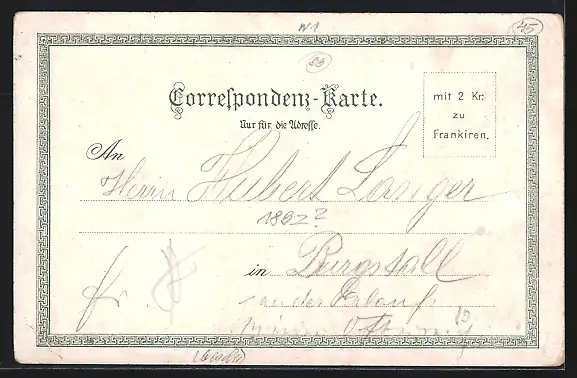 45
Correspondenz-Karte.
Nur für die Adresse.
mit 2 Kr.
zu
Frankiren.
An
Herrn Hubert Langer
1892?
in Purgstall
an der Erlauf
fr.